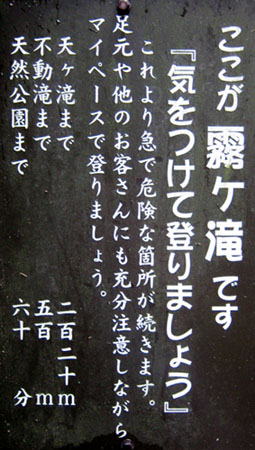 ここが 霧ケ滝 です
『気をつけて登りましょう』
これより急で危険な箇所が続きます。
足元や他のお客さんにも充分注意しながら
マイペースで登りましょう。
天ヶ滝まで 二百二十m
不動滝まで 五百 m
天然公園まで 六十 分